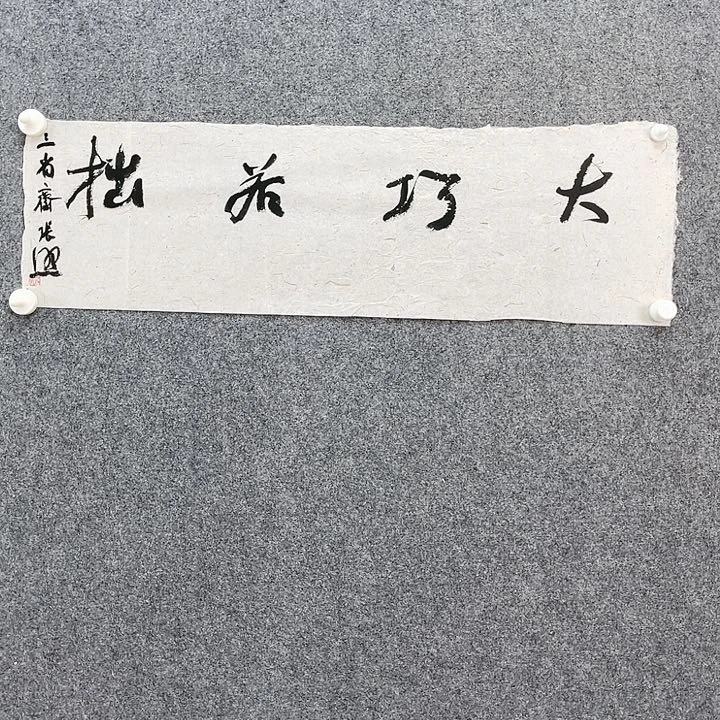 大巧若拙
三省齋張